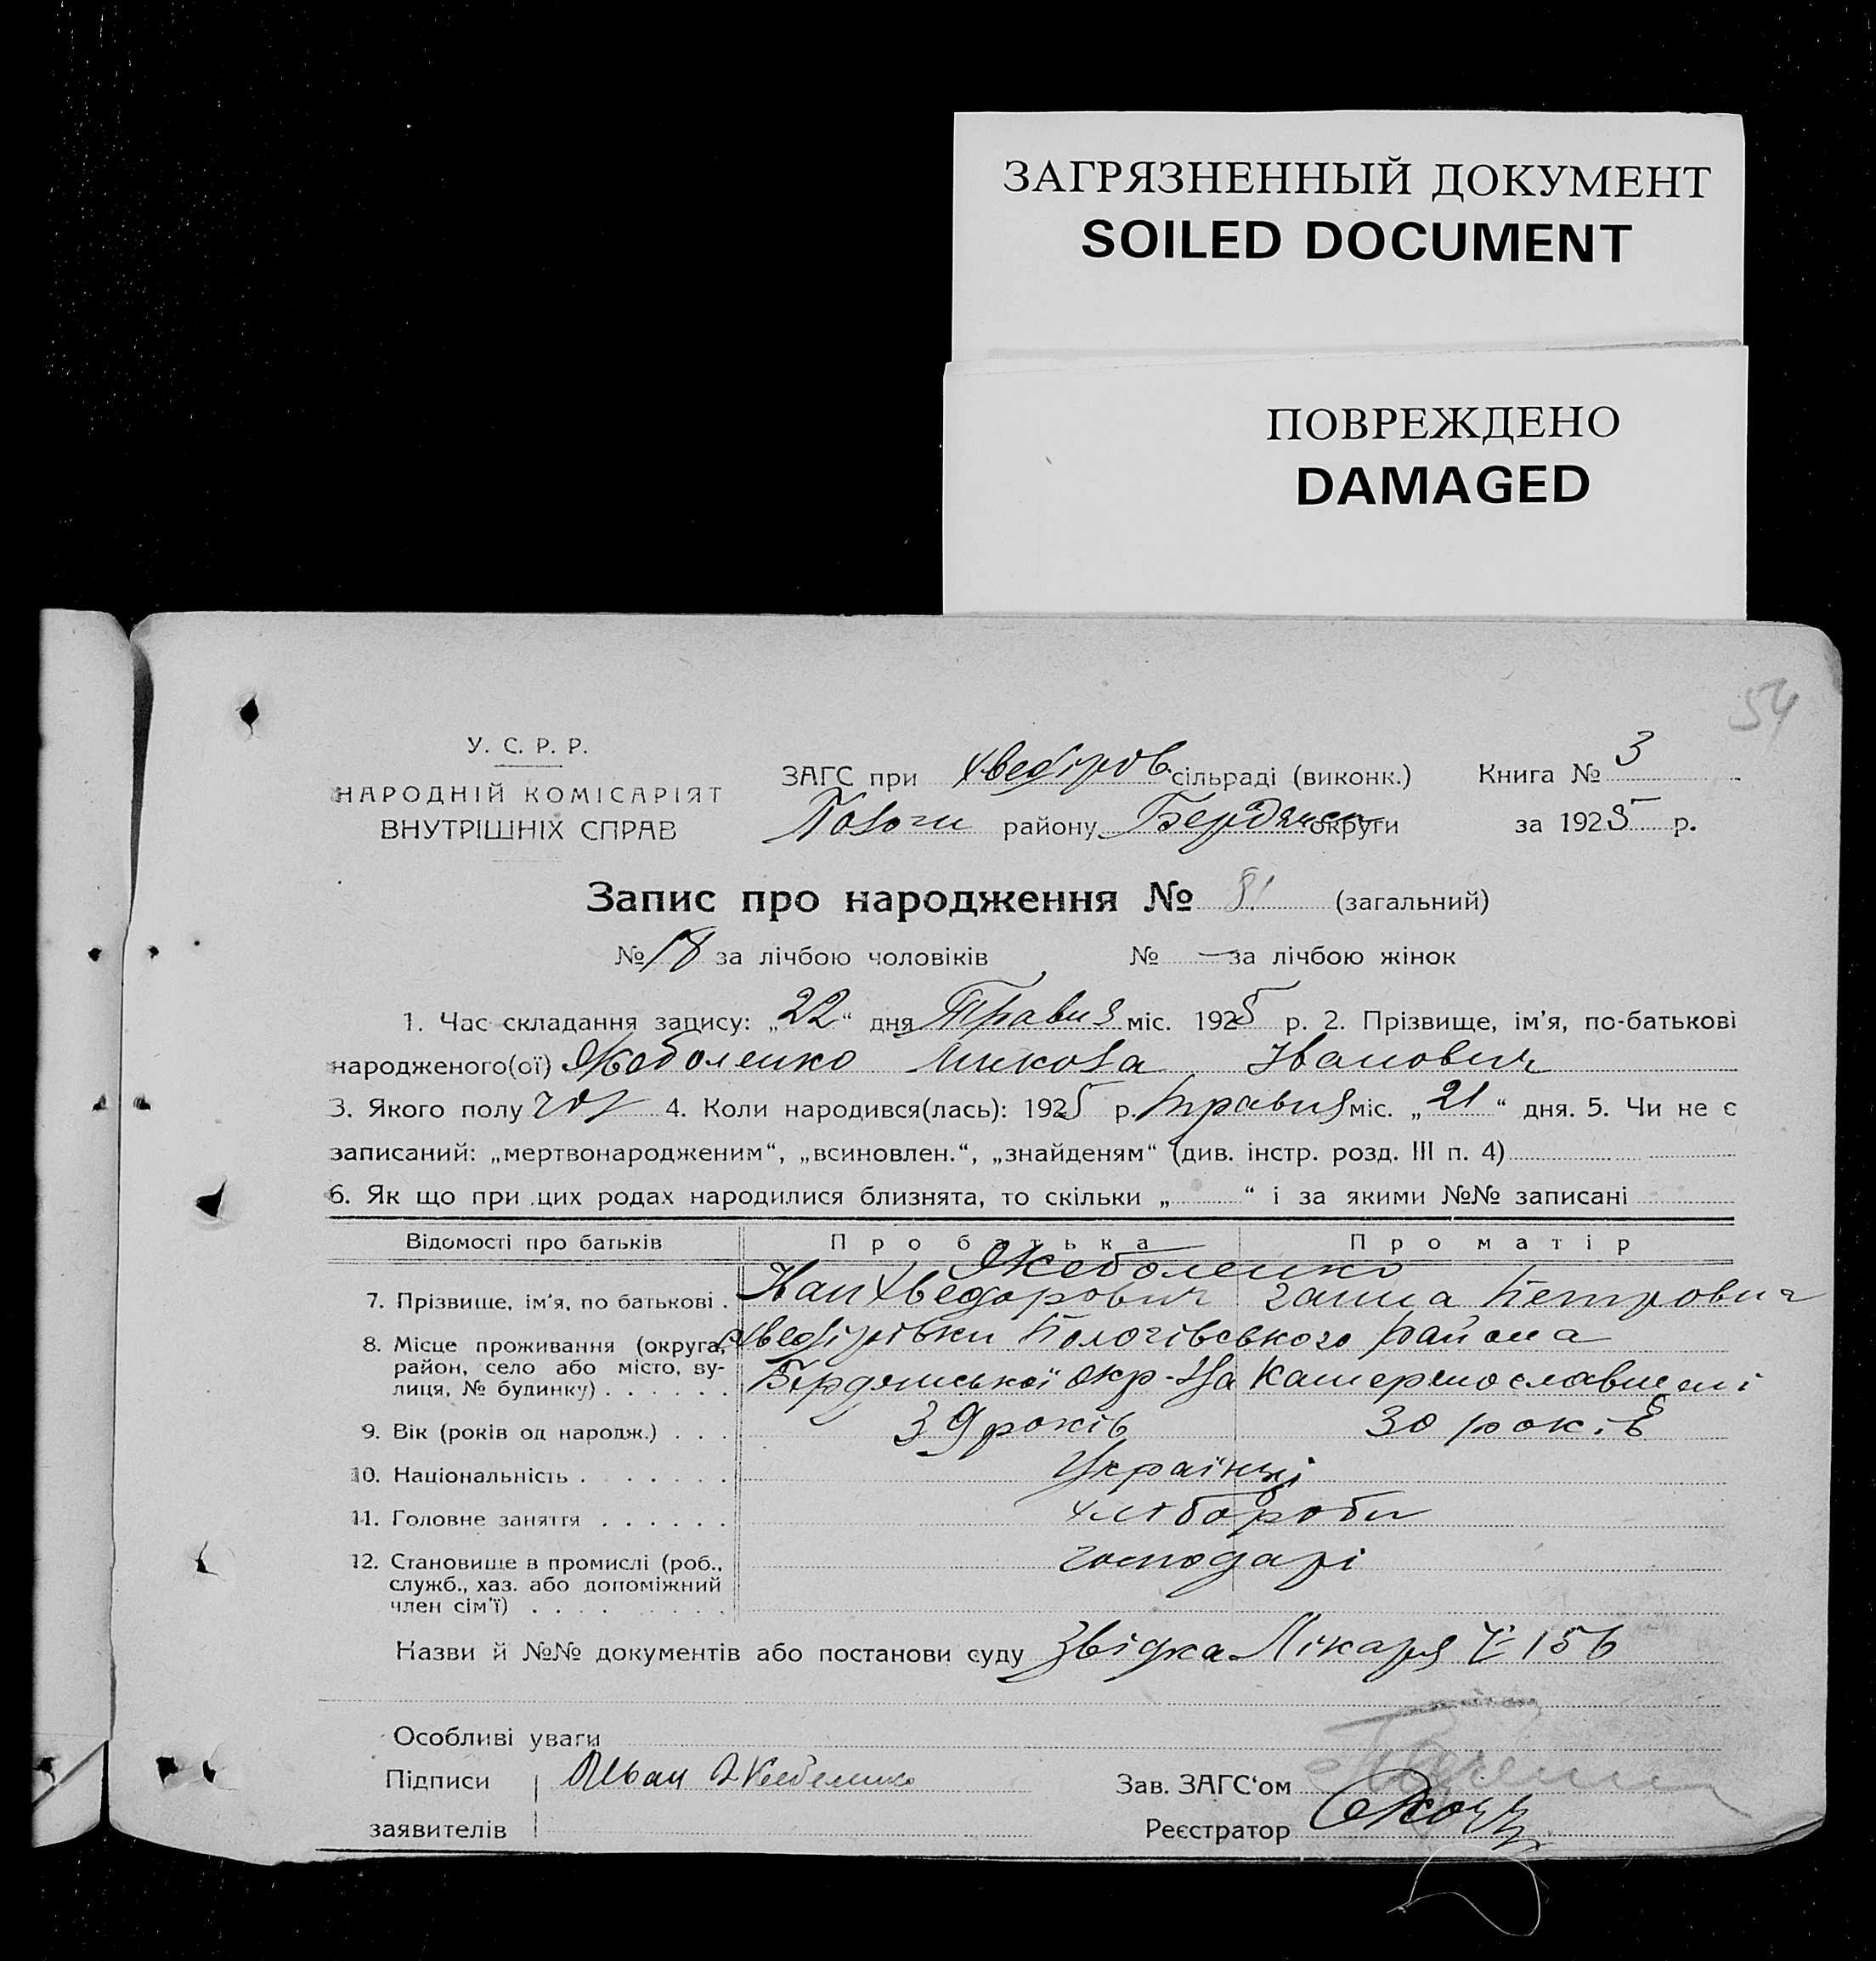 ЗАГРЯЗНЕННЫЙ ДОКУМЕНТ
SOILED DOCUMENT
ПОВРЕЖДЕНО
DAMAGED
54
У. С. Р. Р.
НАРОДНІЙ КОМІСАРІЯТ
ВНУТРІШНІХ СПРАВ
ЗАГС при Хведіров. сільраді (виконк.) Книга № 3
Пологи району Бердянск округи за 1925 р.
Запис про народження № 81 (загальний)
№ 18 за лічбою чоловіків № — за лічбою жінок
1. Час складання запису: „22“ дня Травня міс. 1925 р. 2. Прізвище, ім'я, по-батькові
народженого(ої) Жеболенко Микола Іванович
3. Якого полу чол 4. Коли народився(лась): 1925 р. Травня міс. „21“ дня. 5. Чи не є
записаний: „мертвонародженим“, „всиновлен.“, „знайденям“ (див. інстр. розд. III п. 4)
6. Як що при цих родах народилися близнята, то скільки „ “ і за якими №№ записані
Відомості про батьків Про батька Про матір
Жеболенко
7. Прізвище, ім'я, по батькові . Іван Хведорович Ганна Петрович
8. Місце проживання (округа, Хведірівки Пологівського района
район, село або місто, ву-
лиця, № будинку) . . . . . . Бердянської окр. на Катеринославщені
9. Вік (років од народж.) . . . 39 років 30 років
10. Національність . . . . . . . Українці
11. Головне заняття . . . . . . хлібороби
12. Становище в промислі (роб., господарі
служб., хаз. або допоміжний
член сім'ї) . . . . . . . . .
Назви й №№ документів або постанови суду Звідка Лікаря № 156
Особливі уваги
Підписи Иван Жеболенко Зав. ЗАГС‘ом
заявителів Реєстратор